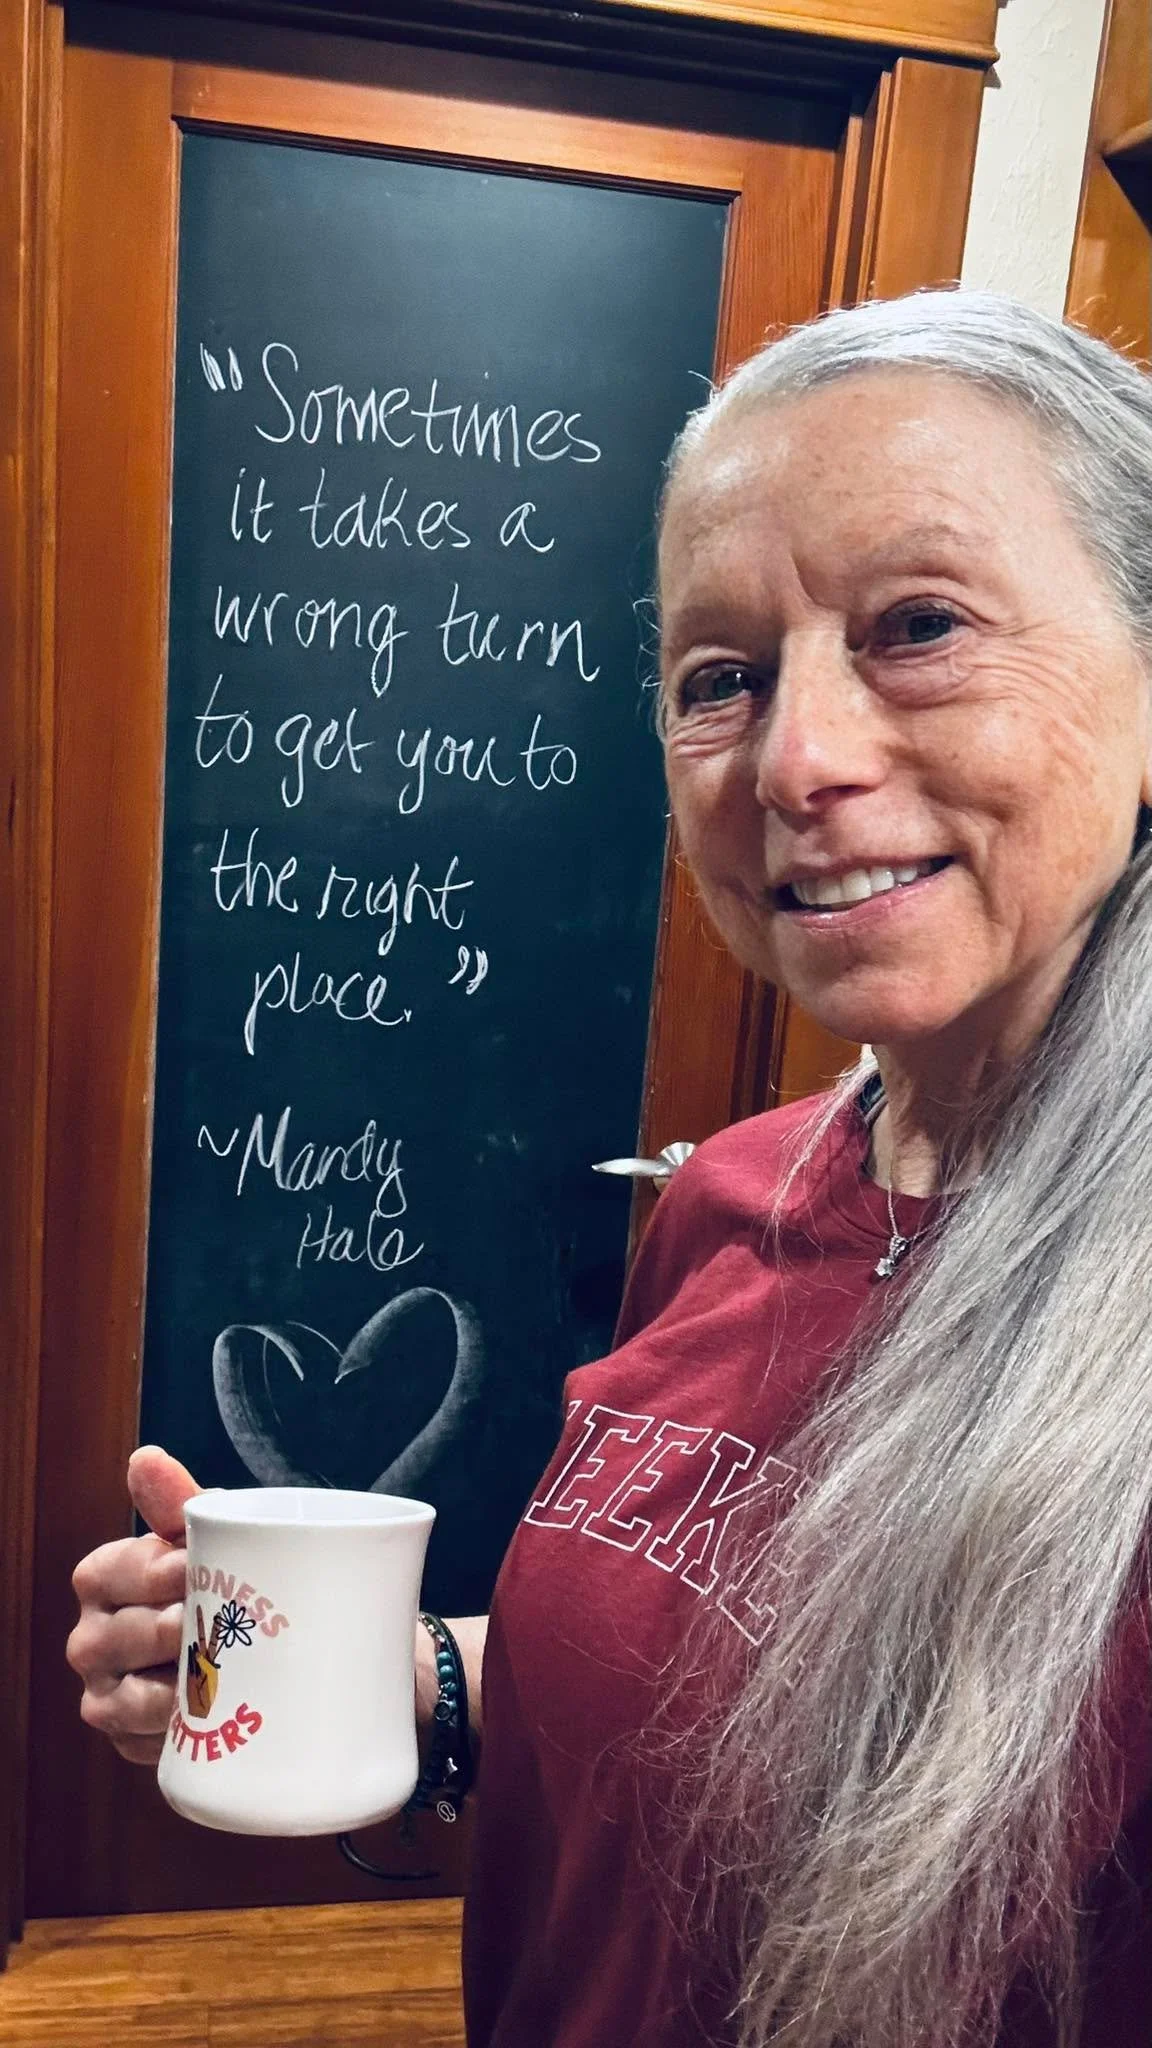 "Sometimes
it takes a
wrong turn
to get you to
the right
place."
~Mandy
Hale
NDNESS
TTERS
EEK